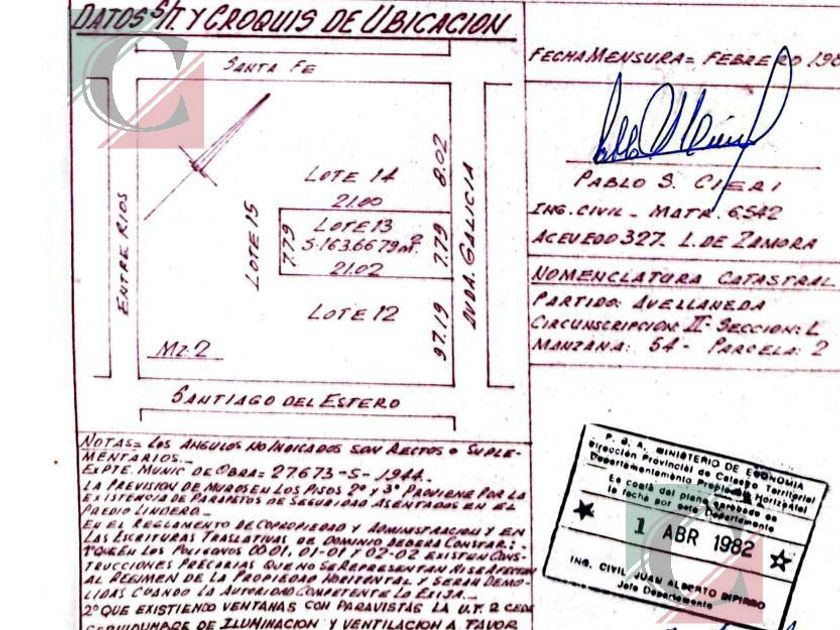 DATOS S/T. Y CROQUIS DE UBICACION
SANTA FE
ENTRE RIOS
LOTE 15
LOTE 14
8.02
21.00
LOTE 13
7.79
S=163.6679 m²
7.79
21.02
LOTE 12
97.19
AVDA. GALICIA
MZ.2
SANTIAGO DEL ESTERO
FECHA MENSURA= FEBRERO 198
PABLO S. CIERI
ING. CIVIL - MATR. 6.542
ACEVEDO 327- L. DE ZAMORA
NOMENCLATURA CATASTRAL
PARTIDO: AVELLANEDA
CIRCUNSCRIPCION: II- SECCION: L
MANZANA: 54 - PARCELA: 2
NOTAS= LOS ANGULOS NO INDICADOS SON RECTOS O SUPLE-
MENTARIOS.-
EXPTE. MUNIC DE OBRA= 27.673-S-1944.-
LA PREVISION DE MUROS EN LOS PISOS 2º Y 3º PROVIENE POR LA
EXISTENCIA DE PARAPETOS DE SEGURIDAD ASENTADOS EN EL
PREDIO LINDERO.-
EN EL REGLAMENTO DE COPROPIEDAD Y ADMINISTRACION Y EN
LAS ESCRITURAS TRASLATIVAS DE DOMINIO DEBERA CONSTAR:
1º QUE EN LOS POLIGONOS 00-01, 01-01 Y 02-02 EXISTEN CONS-
TRUCCIONES PRECARIAS QUE NO SE REPRESENTAN NI SE AFECTAN
AL REGIMEN DE LA PROPIEDAD HORIZONTAL Y SERAN DEMO-
LIDAS CUANDO LA AUTORIDAD COMPETENTE LO EXIJA.-
2º QUE EXISTIENDO VENTANAS CON PARAVISTAS LA U.T. 2 CEDE
SERVIDUMBRE DE ILUMINACION Y VENTILACION A FAVOR
P. B. A. MINISTERIO DE ECONOMIA
Dirección Provincial de Catastro Territorial
Departamento Propiedad Horizontal
Es copia del plano aprobado en
la fecha por este Departamento
1 ABR 1982
ING. CIVIL JUAN ALBERTO
Jefe Departamento